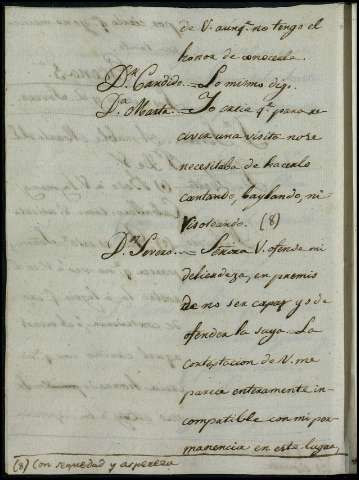 de V. aunq.e no tengo el
honor de conocerla.
D.n Candido. = Lo mismo digo.
D.a Marta. = Yo creia q.e para re-
civir una visita no se
necesitaba de hacerlo
cantando, baylando, ni
visoteando. (8)
D.n Severo. = Señora V. ofende mi
delicadeza, en premio
de no ser capaz yo de
ofender la suya. La
contextacion de V. me
parecia enteramente in-
compatible con mi per-
manencia en este lugar,
(8) con sequedad y aspereza